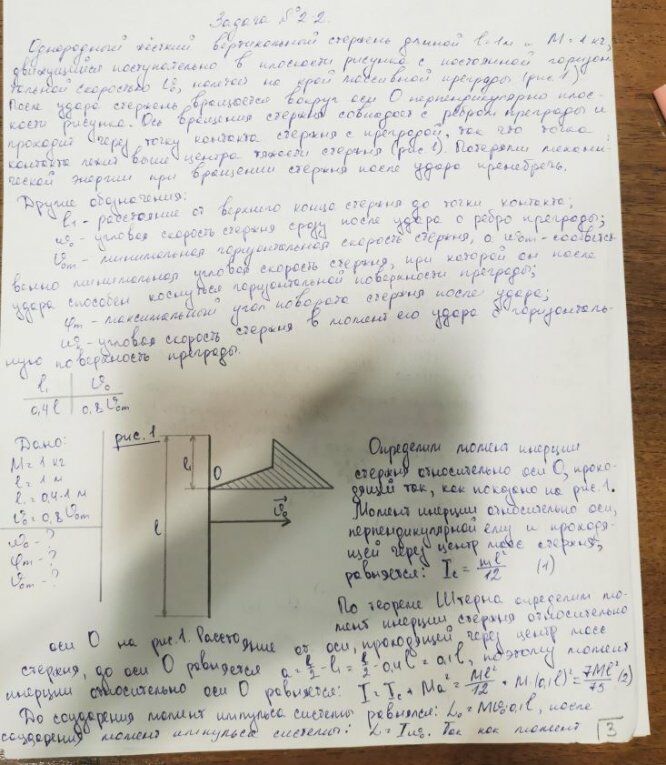 Задача №2.2.
Однородный жёсткий вертикальный стержень длиной l=1м и M=1кг,
движущийся поступательно в плоскости рисунка с постоянной горизон-
тальной скоростью V₀, налетает на край массивной преграды (рис.1)
После удара стержень вращается вокруг оси O перпендикулярно плос-
кости рисунка. Ось вращения стержня совпадает с ребром преграды и
проходит через точку контакта стержня с преградой, так что точка
контакта лежит выше центра тяжести стержня (рис 1). Потерями механи-
ческой энергии при вращении стержня после удара пренебречь.
Другие обозначения:
l₁ - расстояние от верхнего конца стержня до точки контакта;
ω₀ - угловая скорость стержня сразу после удара о ребро преграды;
V₀m - минимальная горизонтальная скорость стержня, а ω₀m - соответс-
венно минимальная угловая скорость стержня, при которой он после
удара способен коснуться горизонтальной поверхности преграды;
φm - максимальный угол поворота стержня после удара;
- угловая скорость стержня в момент его удара о горизонталь-
ную поверхность преграды.
l₁ V₀
0,4l 0,8V₀m
Дано:
M=1 кг
l=1 м
l₁=0,4·1 м
V₀=0,8V₀m
ω₀-?
φm-?
V₀m-?
рис. 1
l₁
O
l
V₀
Определим момент инерции
стержня относительно оси O, прохо-
дящей так, как показано на рис.1.
Момент инерции относительно оси,
перпендикулярной ему и проходя-
щей через центр масс стержня,
равняется: Ic = ml²/12 (1)
По теореме Штерна определим мо-
мент инерции стержня относительно
оси O на рис.1. Расстояние от оси, проходящей через центр масс
стержня, до оси O равняется a = l/2 - l₁ = l/2 - 0,4l = 0,1l, поэтому момент
инерции относительно оси O равняется: I = Ic + Ma² = Ml²/12 + M(0,1l)² = 7Ml²/75 (2)
До соударения момент импульса системы равнялся: L₀ = MV₀0,1l, после
соударения момент импульса системы: L = Iω₀. Так как момент
3